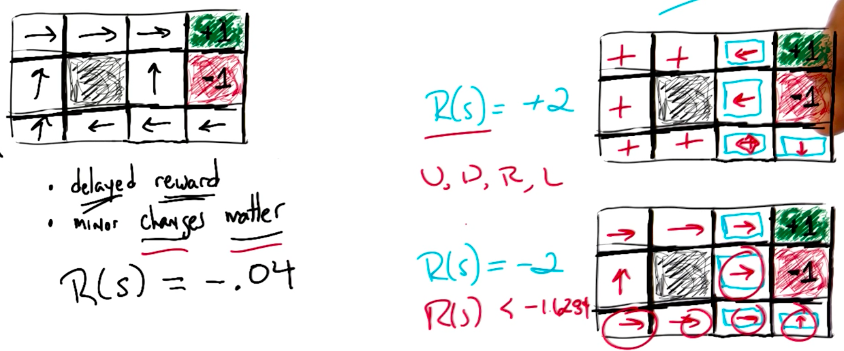 → → → +1
↑ ↑ -1
↑ ← ← ←
• delayed reward
• minor changes matter
R(s) = -.04
R(s) = +2
U, D, R, L
+ + ← +1
+ ← -1
+ + ↓
R(s) = -2
R(s) < -1.6284
→ → → +1
↑ → -1
→ → → ↑